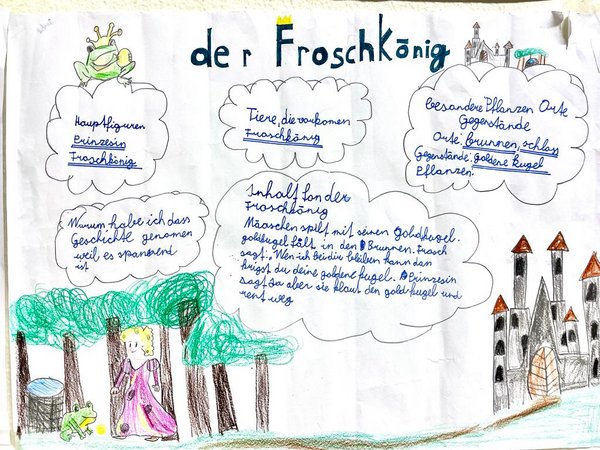 der Froschkönig
Hauptfiguren
Prinzesin
Froschkönig
Tiere, die vorkomen
Froschkönig
besondere Pflanzen Orte
Gegenstände
Orte: Brunnen, schloss
Gegenstände: goldene kugel
Pflanzen:
Warum habe ich dass
Geschichte genomen
weil es spanerend
ist
Inhalt fon der
Froschkönig
Mäaschen spilt mit seinen goldkugel.
goldkugel fält in den Brunnen. Frosch
sagt: Wen ich bei dir bleiben kann dan
krigst du deine goldene kugel. Prinzesin
sagt ja aber sie klaut den goldkugel und
rent weg